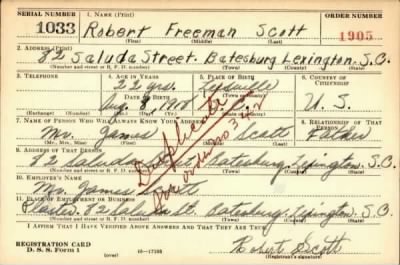 SERIAL NUMBER 1. NAME (Print) ORDER NUMBER
1033 Robert Freeman Scott 1905
(First) (Middle) (Last)
2. ADDRESS (Print)
82 Saluda Street. Batesburg Lexington, S.C.
(Number and street or R. F. D. number) (Town) (County) (State)
3. TELEPHONE 4. AGE IN YEARS 5. PLACE OF BIRTH 6. COUNTRY OF CITIZENSHIP
DATE OF BIRTH
Aug 8 U. S.
(Exchange) (Number) (Mo.) (Day) (Yr.) (State or country)
7. NAME OF PERSON WHO WILL ALWAYS KNOW YOUR ADDRESS 8. RELATIONSHIP OF THAT PERSON
Mr. James Scott Father
(Mr., Mrs., Miss) (First) (Middle) (Last)
9. ADDRESS OF THAT PERSON
82 Saluda Batesburg, Lexington, S.C.
(Number and street or R. F. D. number) (Town) (County) (State)
10. EMPLOYER'S NAME
Mr. James Scott
11. PLACE OF EMPLOYMENT OR BUSINESS
82 St. Batesburg Lexington, S.C.
(Number and street or R. F. D. number) (Town) (County) (State)
I AFFIRM THAT I HAVE VERIFIED ABOVE ANSWERS AND THAT THEY ARE TRUE.
Duplicate
REGISTRATION CARD
D. S. S. Form 1 (over) 16-17105 Robert Scott
(Registrant's signature)